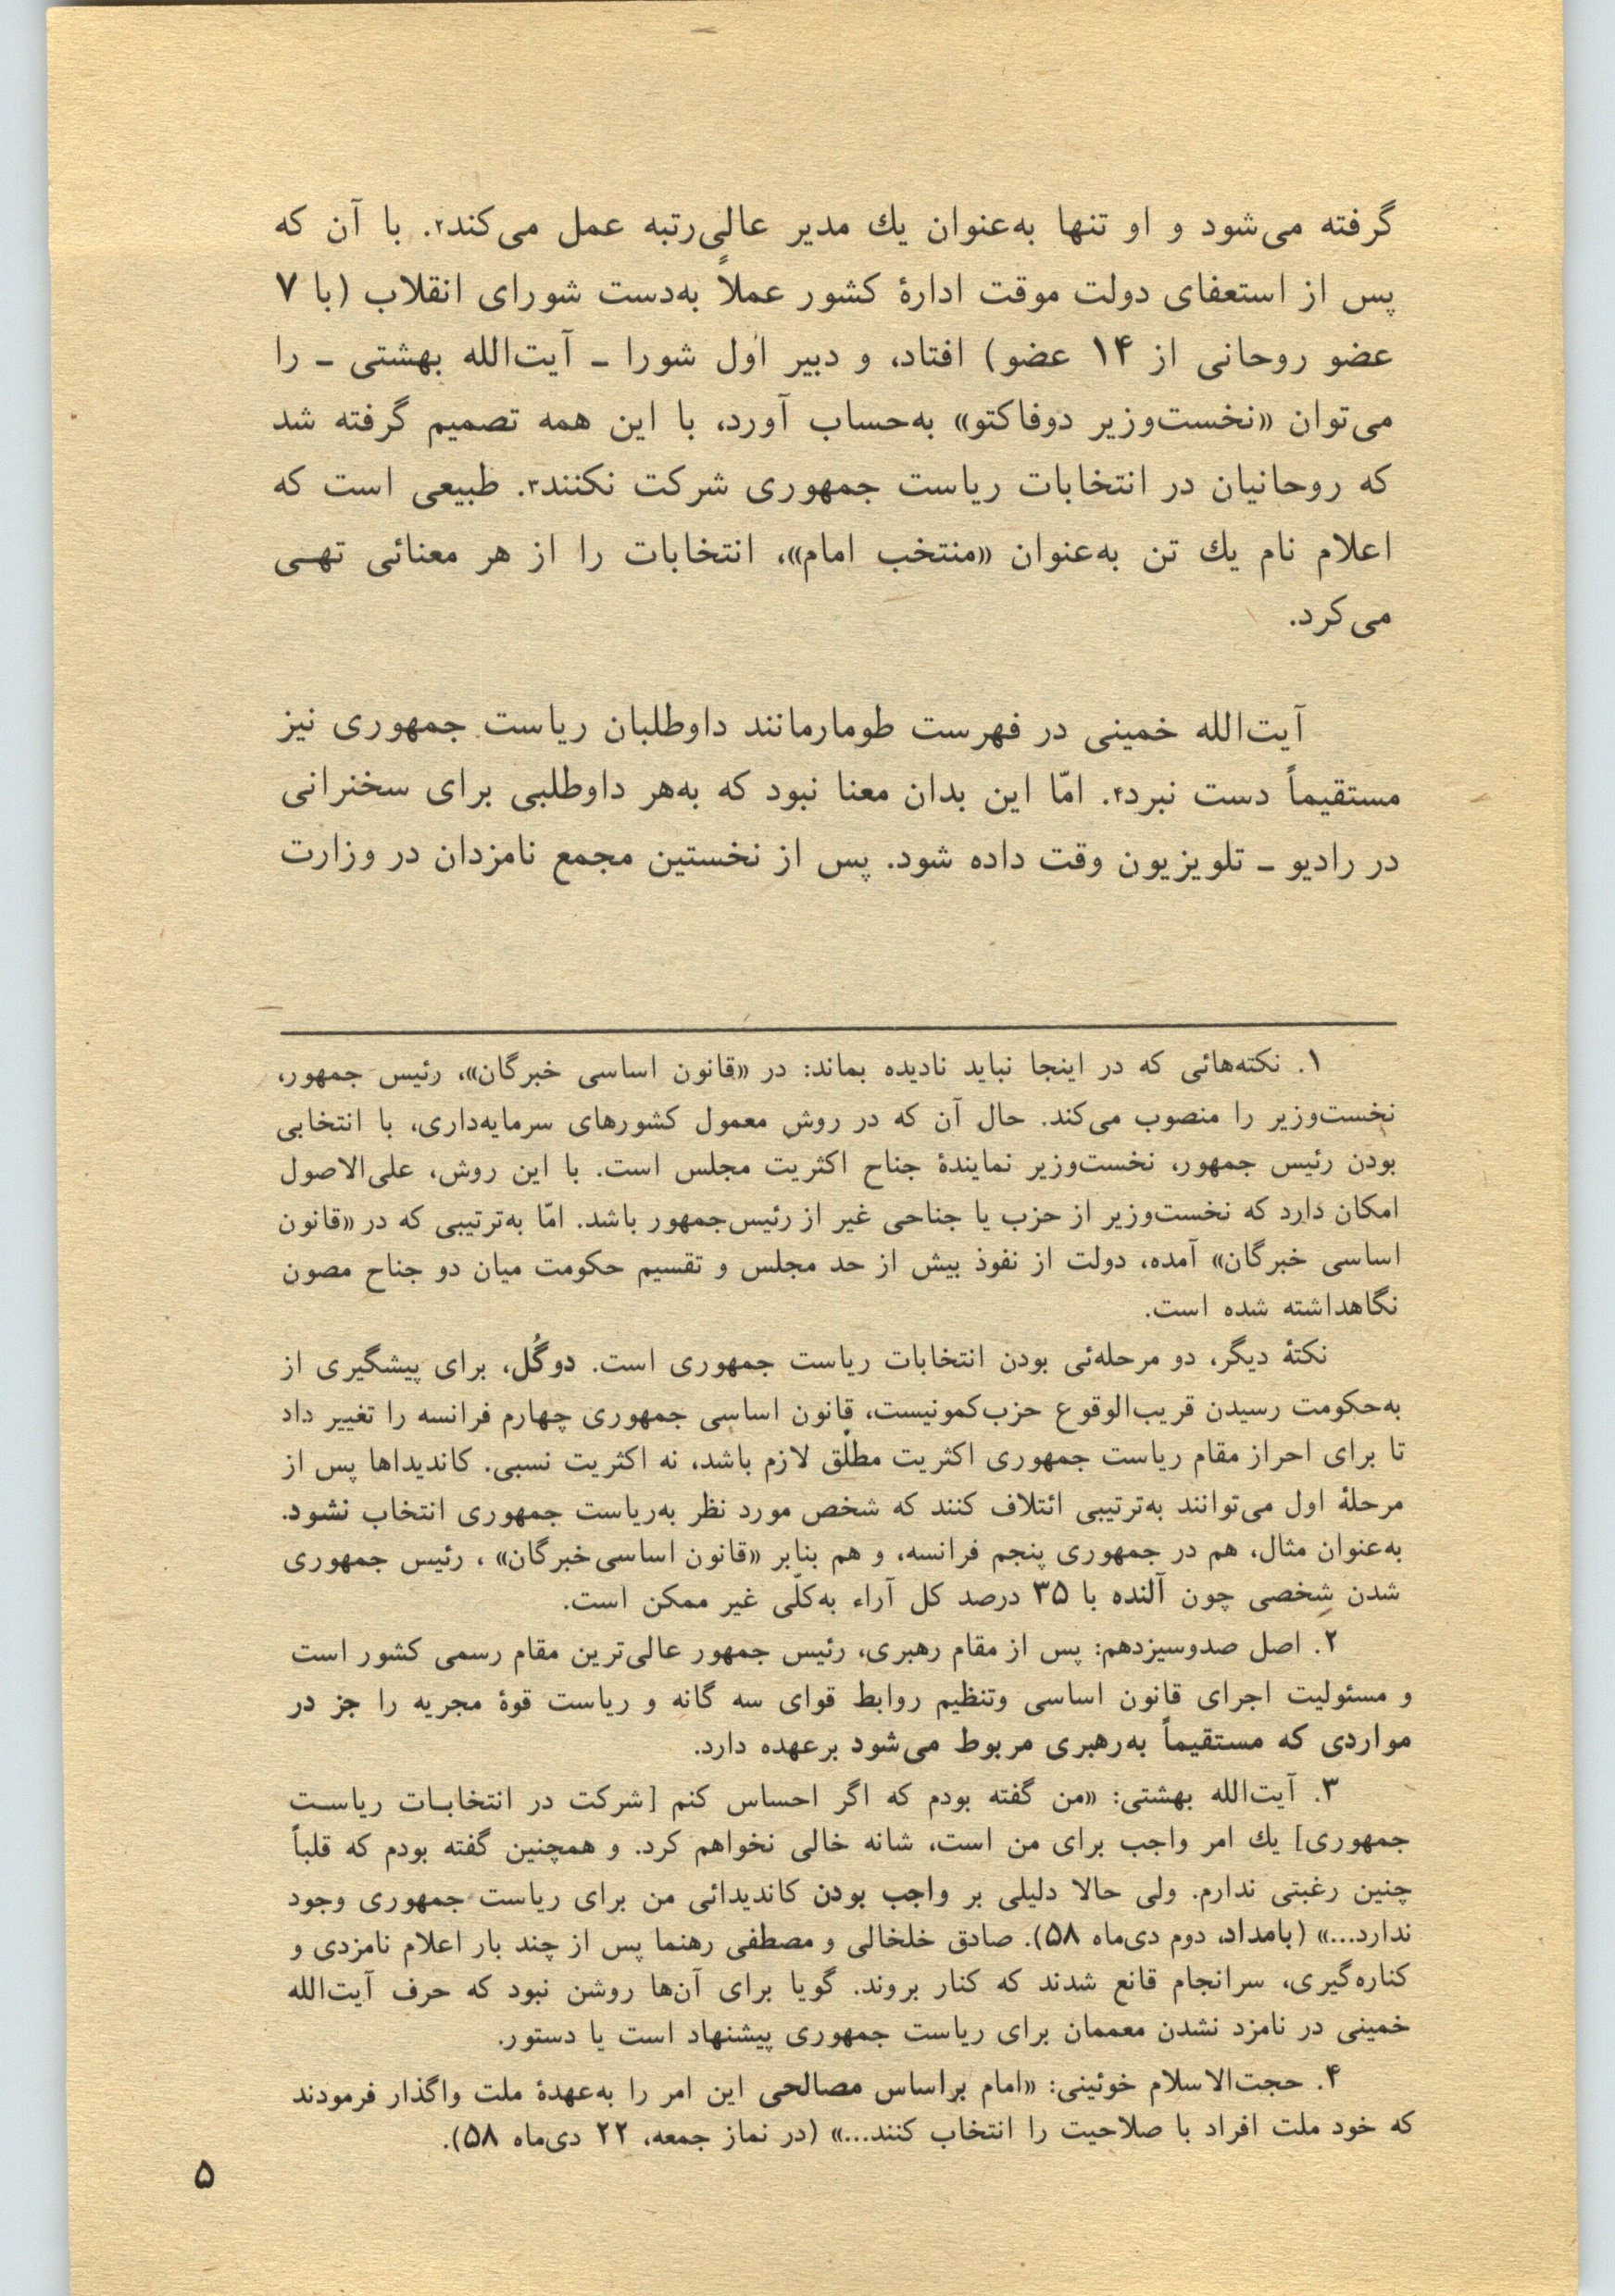 گرفته می‌شود و او تنها به‌عنوان یك مدیر عالی‌رتبه عمل می‌کند۲. با آن که
پس از استعفای دولت موقت ادارهٔ کشور عملاً به‌دست شورای انقلاب (با ۷
عضو روحانی از ۱۴ عضو) افتاد، و دبیر اول شورا ـ آیت‌الله بهشتی ـ را
می‌توان «نخست‌وزیر دوفاکتو» به‌حساب آورد، با این همه تصمیم گرفته شد
که روحانیان در انتخابات ریاست جمهوری شرکت نکنند۳. طبیعی است که
اعلام نام یك تن به‌عنوان «منتخب امام»، انتخابات را از هر معنائی تهـی
می‌کرد.
آیت‌الله خمینی در فهرست طومارمانند داوطلبان ریاست جمهوری نیز
مستقیماً دست نبرد۴. امّا این بدان معنا نبود که به‌هر داوطلبی برای سخنرانی
در رادیو ـ تلویزیون وقت داده شود. پس از نخستین مجمع نامزدان در وزارت
۱. نکته‌هائی که در اینجا نباید نادیده بماند: در «قانون اساسی خبرگان»، رئیس جمهور،
نخست‌وزیر را منصوب می‌کند. حال آن که در روش معمول کشورهای سرمایه‌داری، با انتخابی
بودن رئیس جمهور، نخست‌وزیر نمایندهٔ جناح اکثریت مجلس است. با این روش، علی‌الاصول
امکان دارد که نخست‌وزیر از حزب یا جناحی غیر از رئیس‌جمهور باشد. امّا به‌ترتیبی که در «قانون
اساسی خبرگان» آمده، دولت از نفوذ بیش از حد مجلس و تقسیم حکومت میان دو جناح مصون
نگاهداشته شده است.
نکتهٔ دیگر، دو مرحله‌ئی بودن انتخابات ریاست جمهوری است. دوگُل، برای پیشگیری از
به‌حکومت رسیدن قریب‌الوقوع حزب‌کمونیست، قانون اساسی جمهوری چهارم فرانسه را تغییر داد
تا برای احراز مقام ریاست جمهوری اکثریت مطلق لازم باشد، نه اکثریت نسبی. کاندیداها پس از
مرحلهٔ اول می‌توانند به‌ترتیبی ائتلاف کنند که شخص مورد نظر به‌ریاست جمهوری انتخاب نشود.
به‌عنوان مثال، هم در جمهوری پنجم فرانسه، و هم بنابر «قانون اساسی‌خبرگان» ، رئیس جمهوری
شدن شخصی چون آلنده با ۳۵ درصد کل آراء به‌کلّی غیر ممکن است.
۲. اصل صدوسیزدهم: پس از مقام رهبری، رئیس جمهور عالی‌ترین مقام رسمی کشور است
و مسئولیت اجرای قانون اساسی وتنظیم روابط قوای سه گانه و ریاست قوهٔ مجریه را جز در
مواردی که مستقیماً به‌رهبری مربوط می‌شود برعهده دارد.
۳. آیت‌الله بهشتی: «من گفته بودم که اگر احساس کنم [شرکت در انتخابـات ریاسـت
جمهوری] یك امر واجب برای من است، شانه خالی نخواهم کرد. و همچنین گفته بودم که قلباً
چنین رغبتی ندارم. ولی حالا دلیلی بر واجب بودن کاندیدائی من برای ریاست جمهوری وجود
ندارد...» (بامداد، دوم دی‌ماه ۵۸). صادق خلخالی و مصطفی رهنما پس از چند بار اعلام نامزدی و
کناره‌گیری، سرانجام قانع شدند که کنار بروند. گویا برای آن‌ها روشن نبود که حرف آیت‌الله
خمینی در نامزد نشدن معممان برای ریاست جمهوری پیشنهاد است یا دستور.
۴. حجت‌الاسلام خوئینی: «امام براساس مصالحی این امر را به‌عهدهٔ ملت واگذار فرمودند
که خود ملت افراد با صلاحیت را انتخاب کنند...» (در نماز جمعه، ۲۲ دی‌ماه ۵۸).
۵